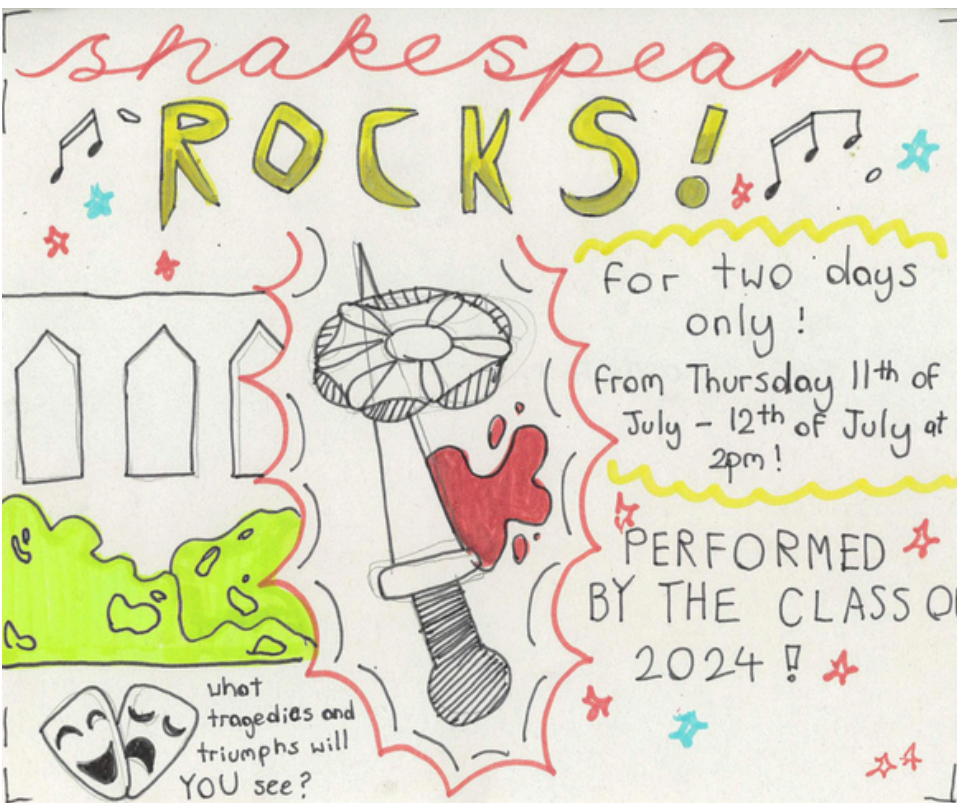 shakespeare
ROCKS!
For two days
only!
from Thursday 11th of
July - 12th of July at
2pm!
PERFORMED
BY THE CLASS O
2024!
what
tragedies and
triumphs will
YOU see?